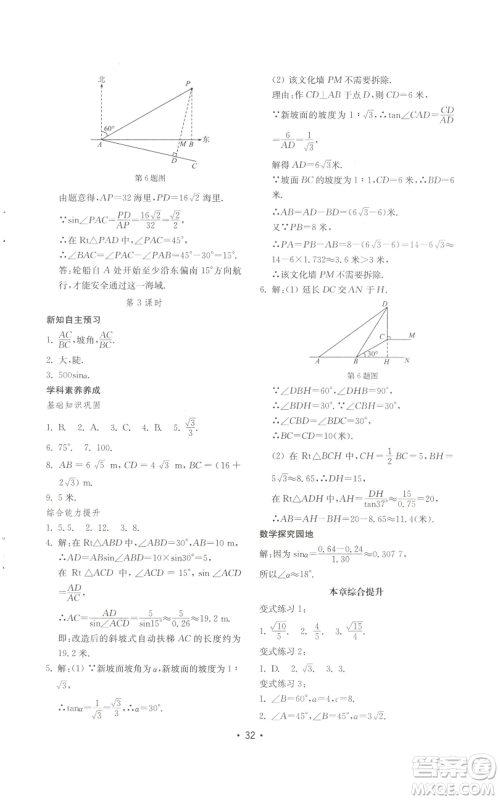 北
P
60°
A
M B
东
D
C
第 6 题图
由题意得,AP=32 海里,PD=16√2 海里.
∵sin∠PAC=PD/AP=16√2/32=√2/2,
∴在 Rt△PAD 中,∠PAC=45°,
∴∠BAC=∠PAC-∠PAB=45°-30°=15°.
答:轮船自 A 处开始至少沿东偏南 15°方向航
行,才能安全通过这一海域.
第 3 课时
新知自主预习
1. AC/BC,坡角,AC/BC.
2. 大,陡.
3. 500sinα.
学科素养养成
基础知识巩固
1. B. 2. A. 3. C. 4. A. 5. √3/3.
6. 75°. 7. 100.
8. AB=6√5 m,CD=4√3 m,BC=(16+
2√3) m.
9. 5 米.
综合能力提升
1. 5.5. 2. 12. 3. 8.
4. 解:∵在 Rt△ABD 中,∠ABD=30°,AB=10 m,
∴AD=ABsin∠ABD=10×sin30°=5.
∵在 Rt△ACD 中,∠ACD=15°,sin∠ACD
=AD/AC,
∴AC=AD/sin15°=5/sin15°≈5/0.26≈19.2 m.
即:改造后的斜坡式自动扶梯 AC 的长度约为
19.2 米.
5. 解:(1)∵新坡面坡角为 α,新坡面的坡度为 1∶
√3,∴tanα=1/√3=√3/3,∴α=30°.
(2) 该文化墙 PM 不需要拆除.
理由:作 CD⊥AB 于点 D,则 CD=6 米.
∵新坡面的坡度为 1∶√3,∴tan∠CAD=CD/AD
=6/AD=1/√3,
解得 AD=6√3 米.
∵坡面 BC 的坡度为 1∶1,CD=6 米,
∴BD=6 米,
∴AB=AD-BD=(6√3-6)米.
又∵PB=8 米,
∴PA=PB-AB=8-(6√3-6)=14-6√3≈
14-6×1.732≈3.6 米>3 米,
∴该文化墙 PM 不需要拆除.
6. 解:(1) 延长 DC 交 AN 于 H.
D
C
M
30°
A
B
H
N
第 6 题图
∵∠DBH=60°,∠DHB=90°,
∴∠BDH=30°.
∵∠CBH=30°,
∴∠CBD=∠BDC=30°,
∴BC=CD=10(米).
(2) 在 Rt△BCH 中,CH=1/2BC=5,BH=
5√3≈8.65,∴DH=15,
在 Rt△ADH 中,AH=DH/tan37°≈15/0.75=20,
∴AB=AH-BH=20-8.65≈11.4(米).
数学探究园地
解:∵sinα=0.64-0.24/1.30≈0.307 7,
所以α≈18°.
本章综合提升
变式练习 1:
1. √10/5. 2. 4/5. 3. √15/4.
变式练习 2:
1. D. 2. √3. 3. 2.
变式练习 3:
1. ∠B=60°,a=4,c=8.
2. ∠A=45°,∠B=45°,a=3√2.
• 32 •